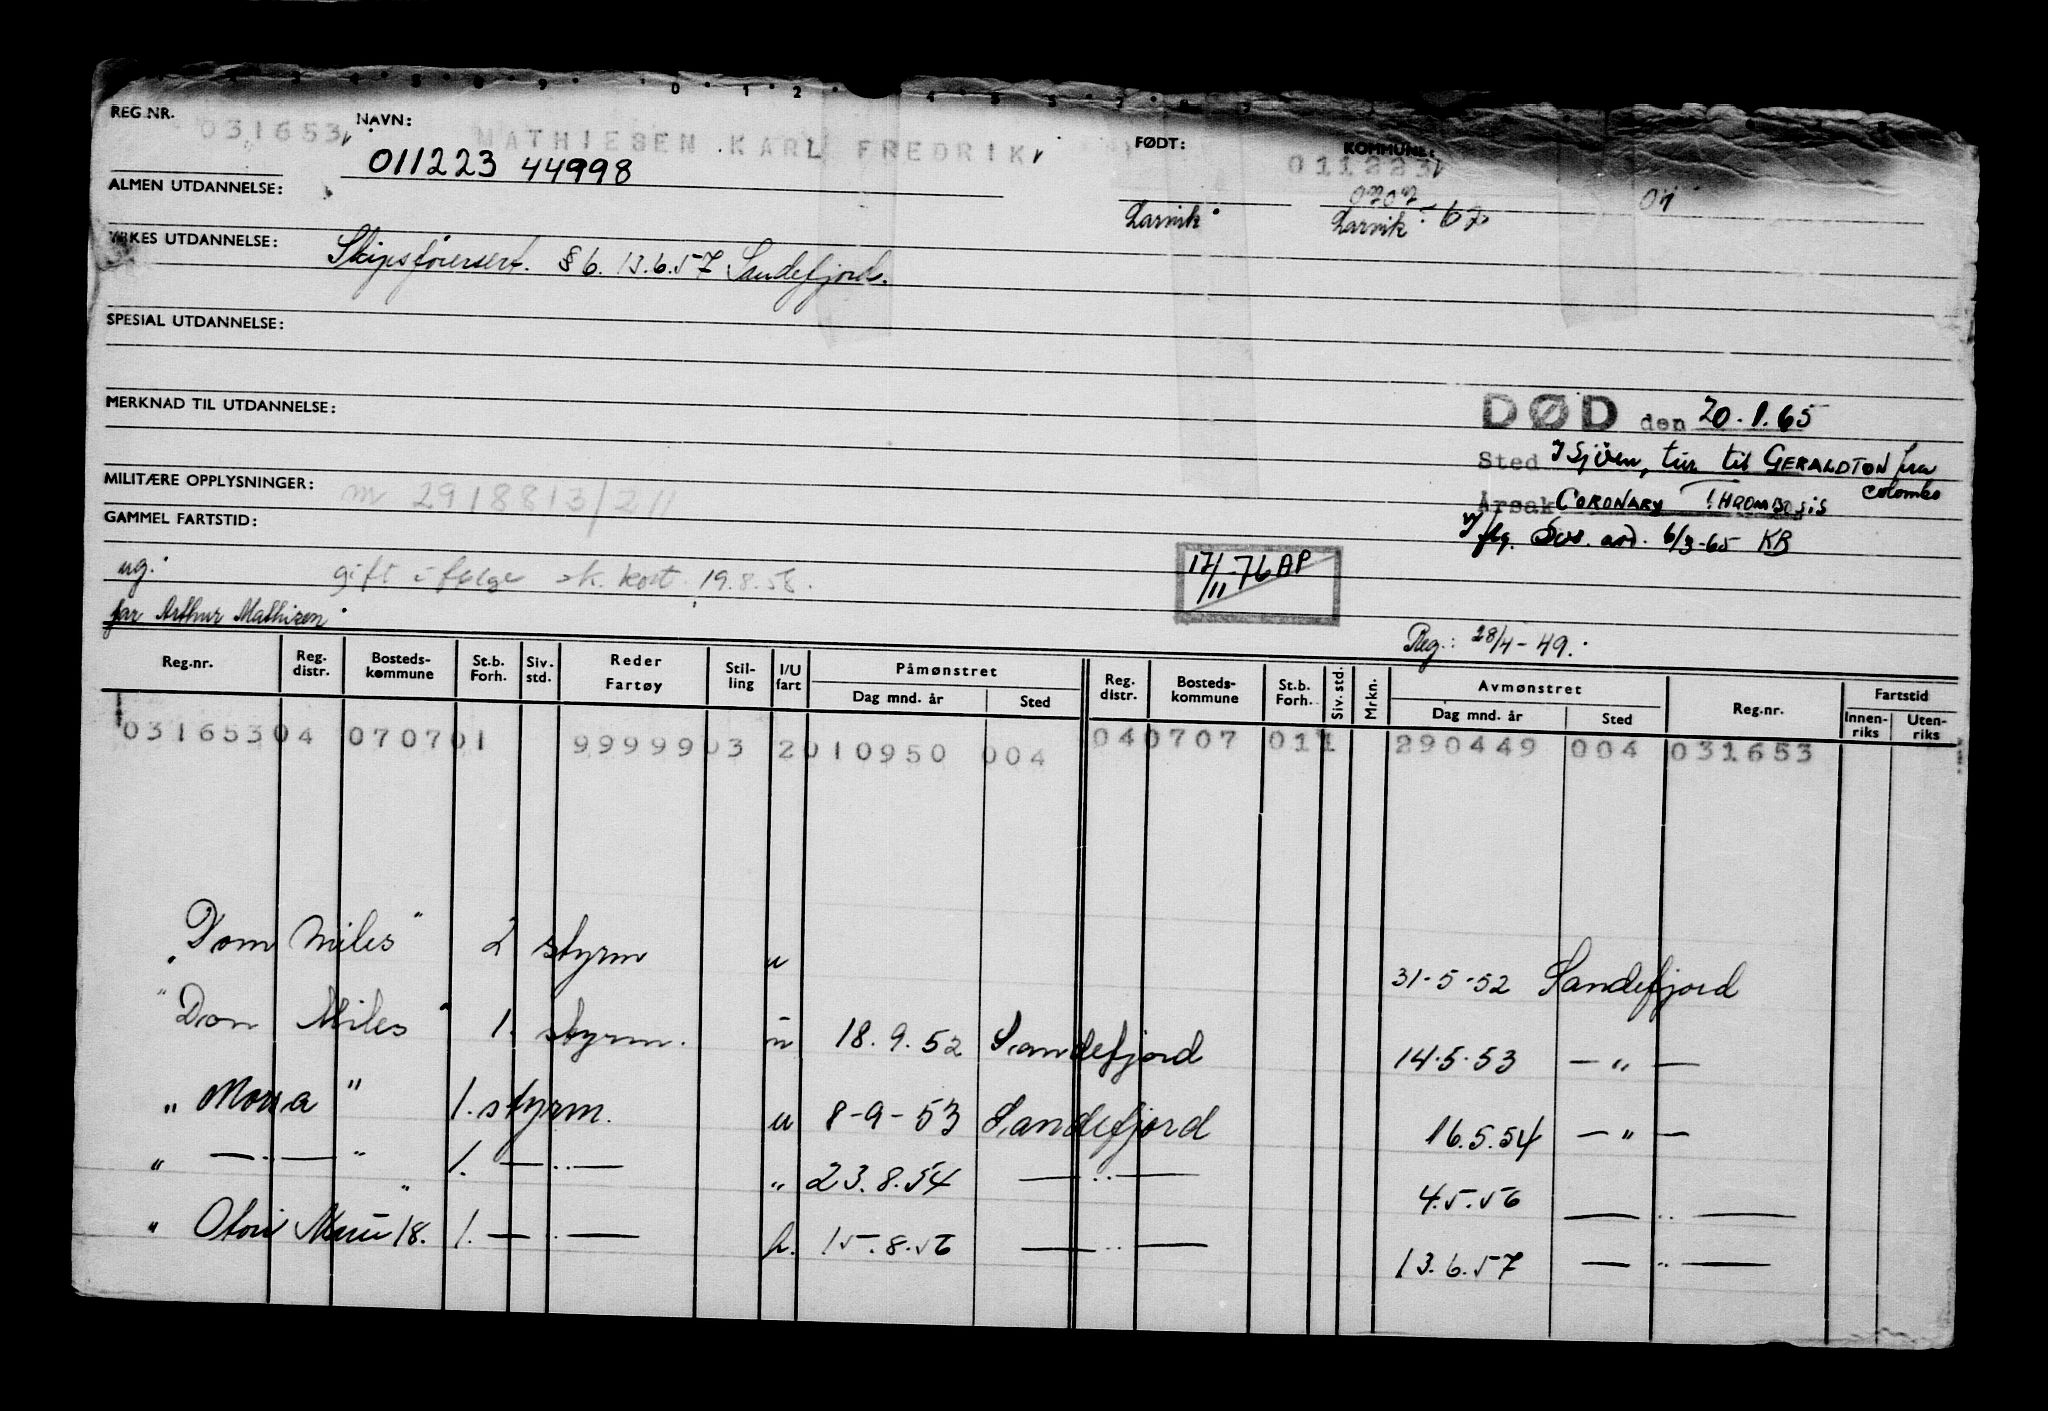 REG.NR. 031653 NAVN: MATHIESEN KARL FREDRIK FØDT: 011223 KOMMUNE:
011223 44998
0707 07
ALMEN UTDANNELSE: Larvik Larvik - 67
YRKES UTDANNELSE: Skipsførersert. § 6. 13.6.57 Sandefjord.
SPESIAL UTDANNELSE:
MERKNAD TIL UTDANNELSE:
DØD den 20.1.65
Sted I Sjøen, tur til GERALDTON fra Colombo
Årsak CORONARY THROMBOSIS
MILITÆRE OPPLYSNINGER: m 2918813/211
GAMMEL FARTSTID:
6/3-65 KB
17/11-76 AP
ug. gift i følge sk. kort 19.8.58.
far Arthur Mathisen
Reg.: 28/4-49.
Reg.nr. Reg. distr. Bosteds-kommune St.b. Forh. Siv. std. Reder Fartøy Stil-ling I/U fart Påmønstret Dag mnd. år Sted Reg. distr. Bosteds-kommune St.b. Forh. Siv. std. Mrkn. Avmønstret Dag mnd. år Sted Reg.nr. Fartstid Innen-riks Uten-riks
031653 04 0707 01 99999 03 2 010950 004 04 0707 01 1 290449 004 031653
"Dom Miles" 2 styrm u 31-5-52 Sandefjord
"Don Miles" 1. styrm. u 18.9.52 Sandefjord 14.5.53 — " —
" Mosa " 1. styrm. u 8-9-53 Sandefjord 16.5.54 — " —
" — .. — " 1. — .. — " 23.8.54 — .. — 4.5.56 — .. —
" 18. 1. — .. — 15.8.56 — .. — 13.6.57 — .. —